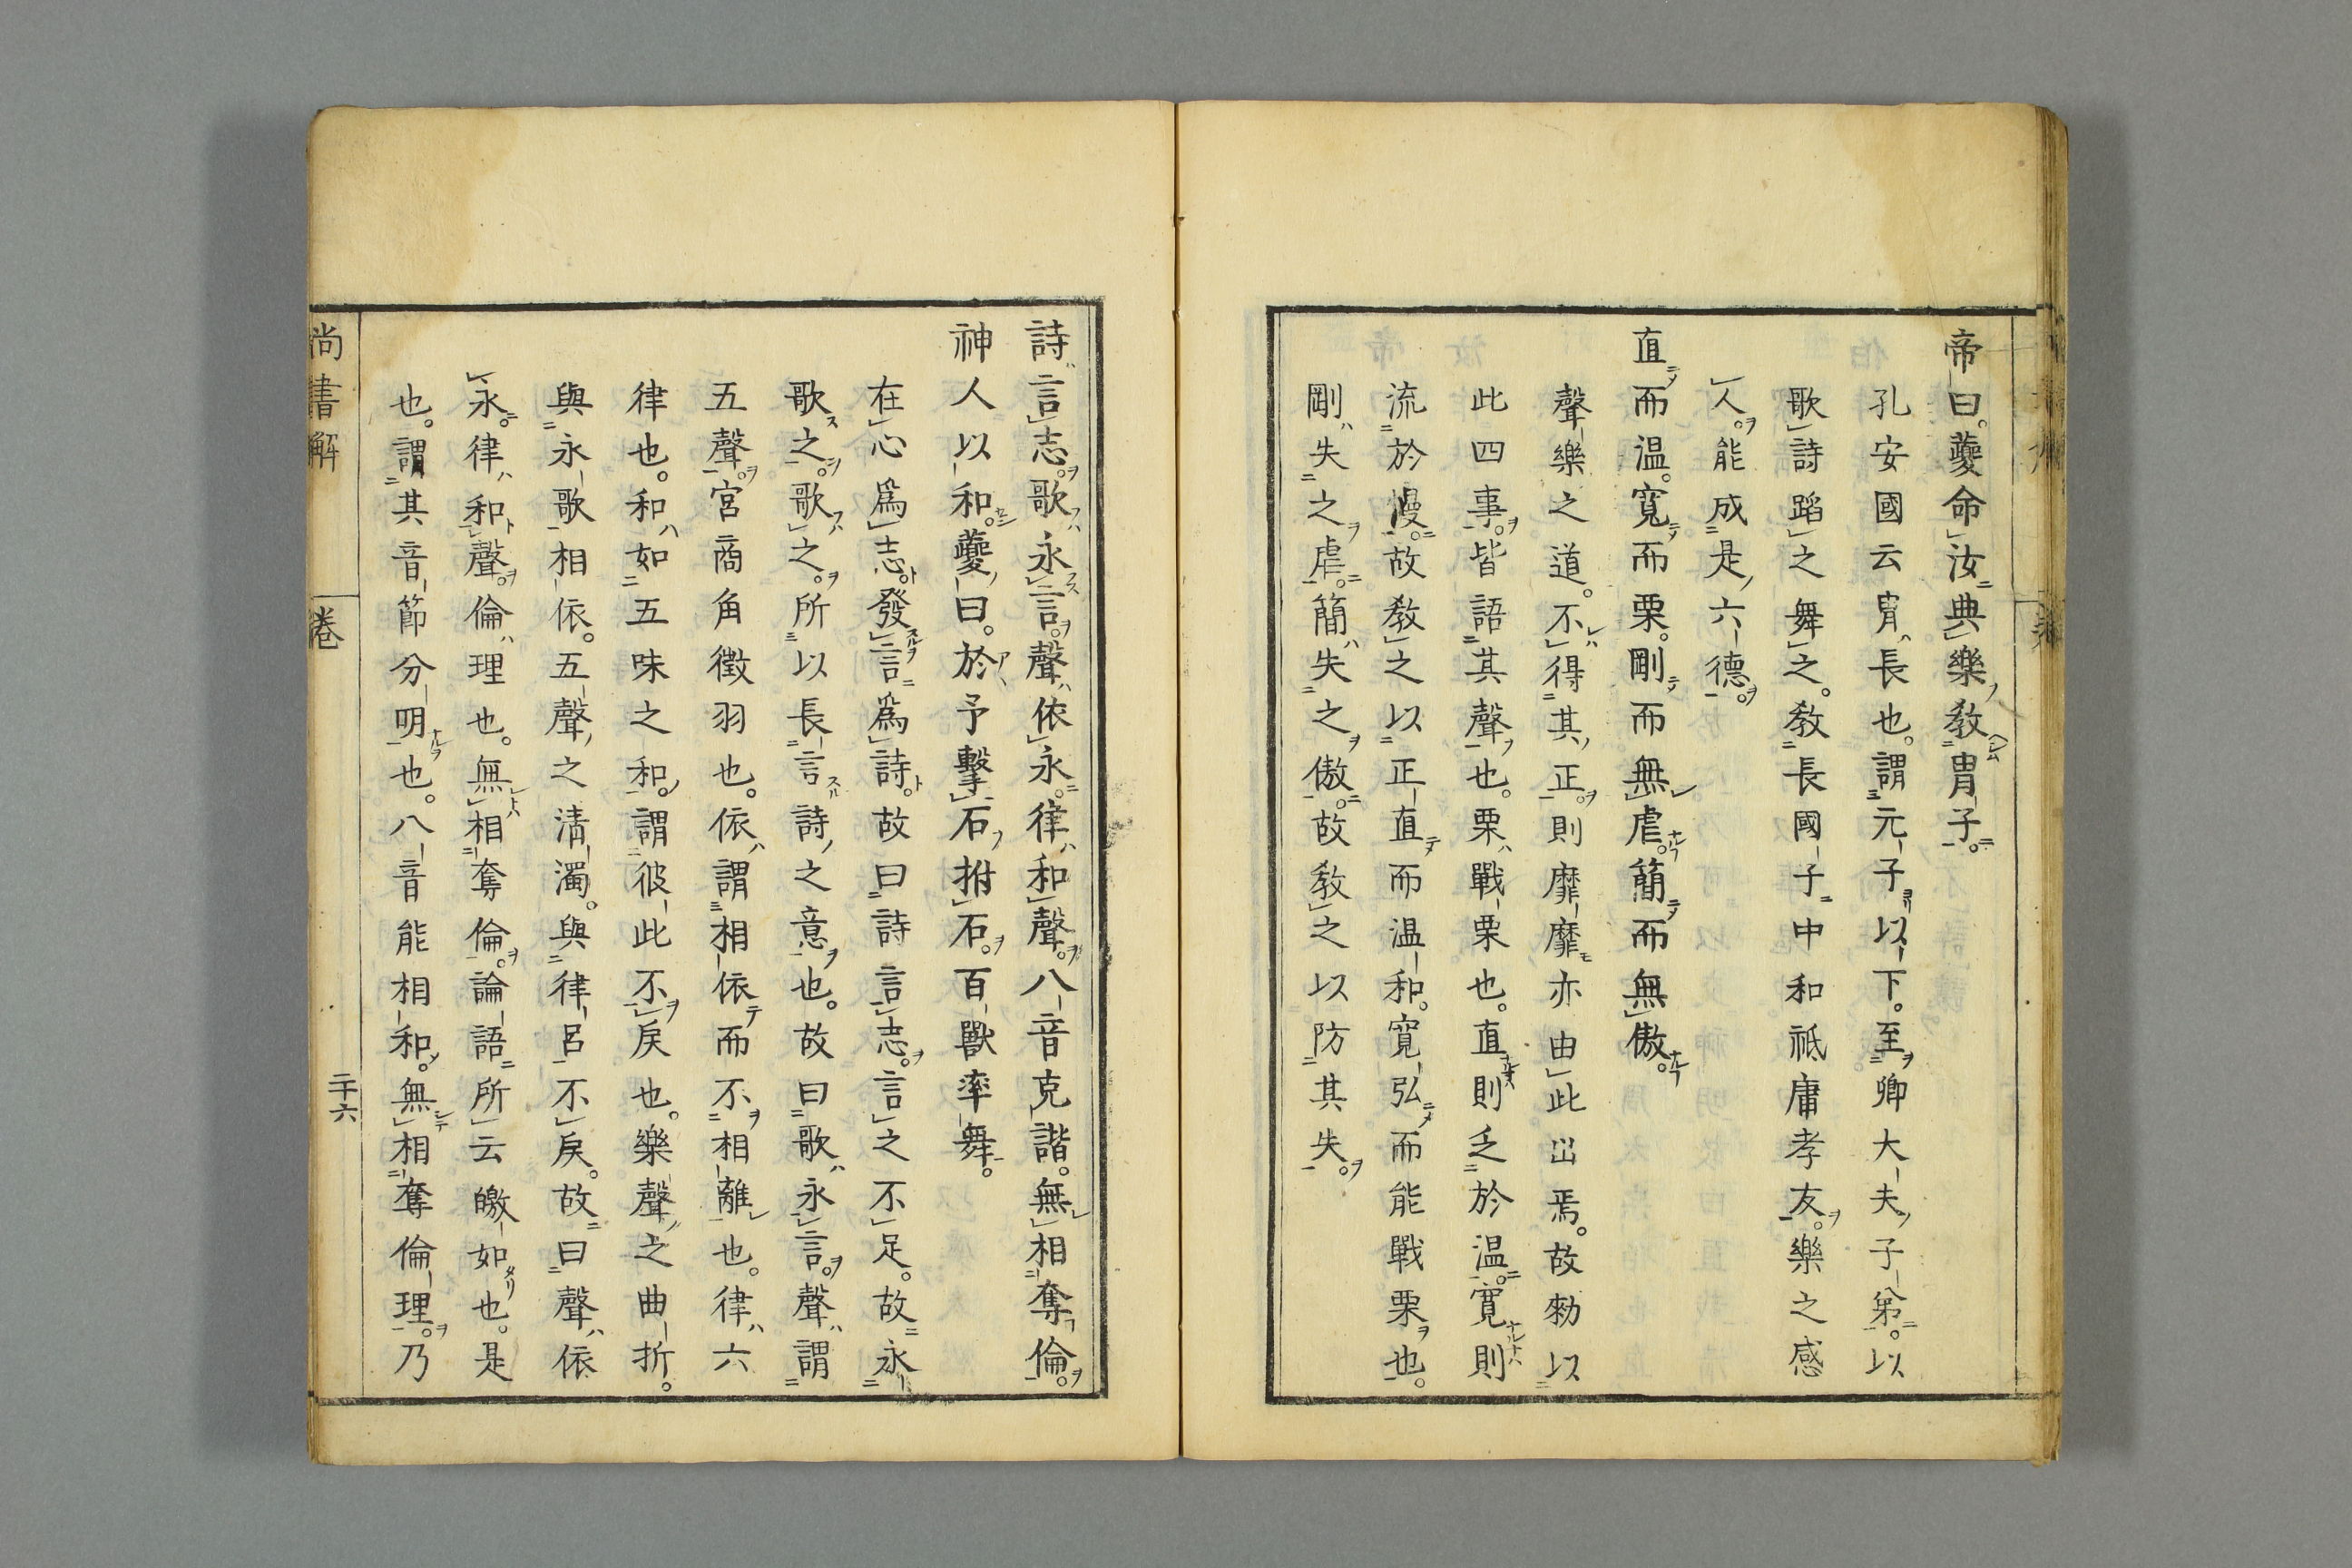 帝曰。夔命汝典樂教冑子。
孔安國云冑長也。謂元子以下。至卿大夫子弟。以
歌詩蹈之舞之。教長國子中和祗庸孝友。樂之感
人。能成是六德。
直而温。寬而栗。剛而無虐。簡而無傲。
聲樂之道。不得其正。則靡靡亦由此出焉。故勑以
此四事。皆語其聲也。栗戰栗也。直則乏於温。寬則
流於慢。故教之以正直而温和。寬弘而能戰栗也。
剛失之虐。簡失之傲。故教之以防其失。
詩言志。歌永言。聲依永。律和聲。八音克諧。無相奪倫。
神人以和。夔曰。於予擊石拊石。百獸率舞。
在心爲志。發言爲詩。故曰詩言志。言之不足。故永
歌之。歌之。所以長言詩之意也。故曰歌永言。聲謂
五聲。宮商角徵羽也。依謂相依而不相離也。律六
律也。和如五味之和。謂彼此不戾也。樂聲之曲折。
與永歌相依。五聲之清濁。與律呂不戾。故曰聲依
永。律和聲。倫理也。無相奪倫。論語所云皦如也。是
也。謂其音節分明也。八音能相和。無相奪倫理。乃
尚書解
卷
二十六